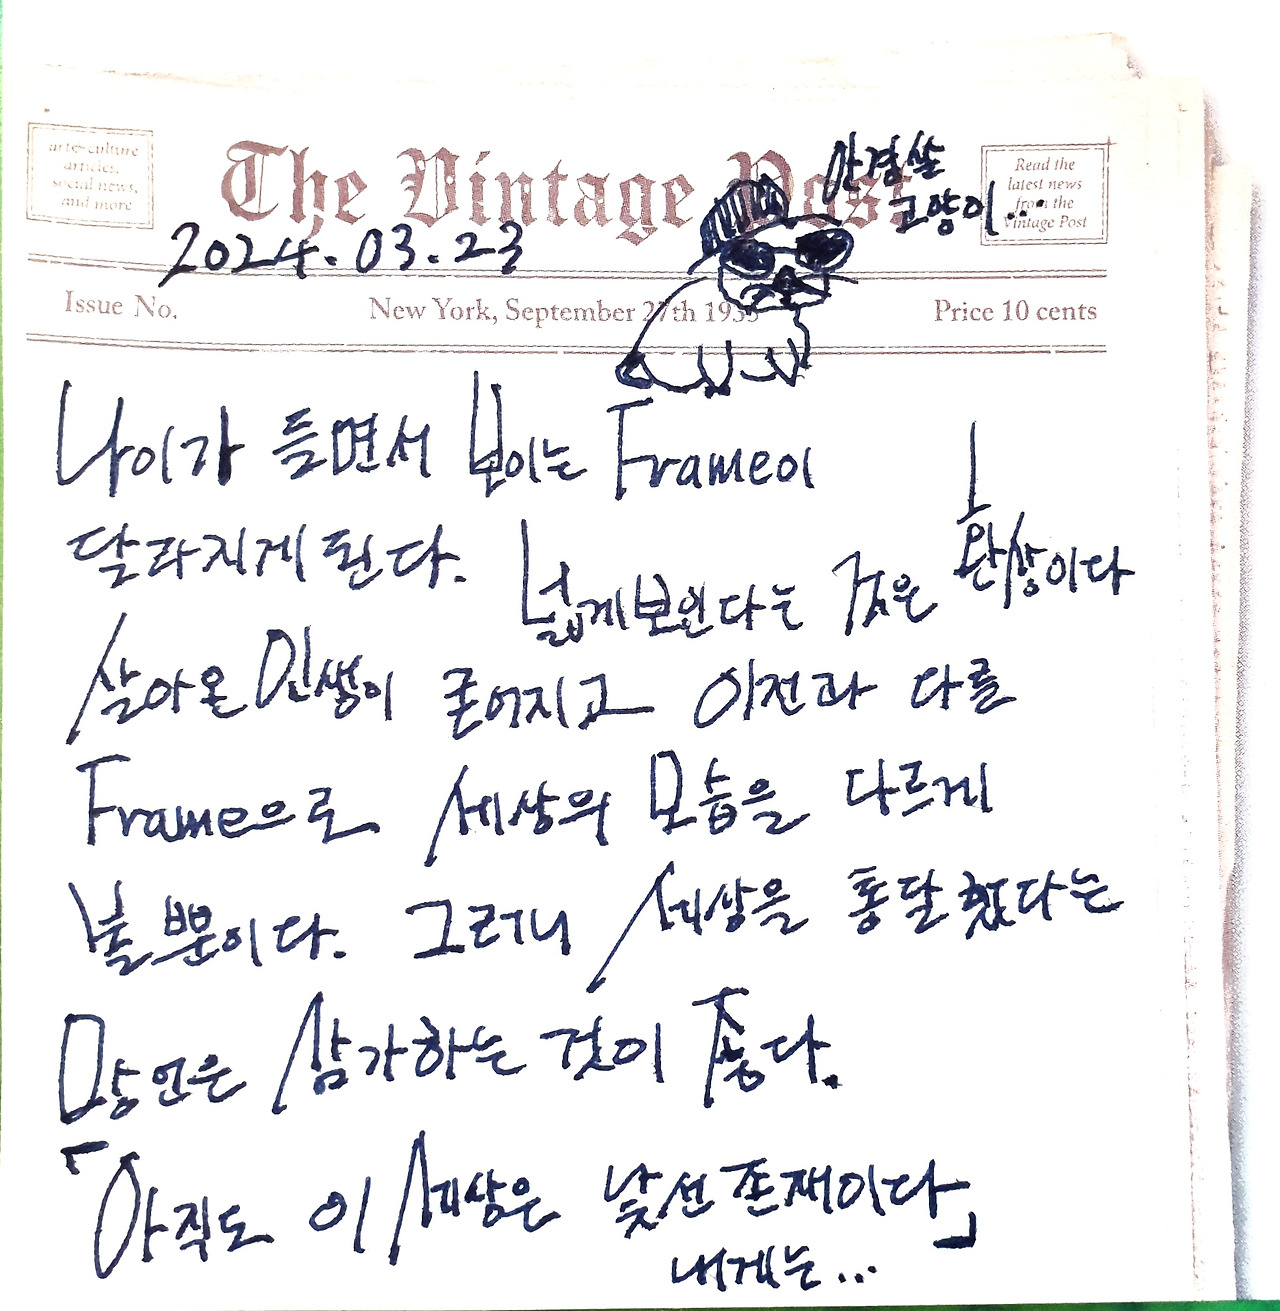 arts-culture
articles,
social news,
and more
The Vintage Post
안경쓴
고양이...
Read the
latest news
from the
Vintage Post
2024.03.23
Issue No.
New York, September 27th 1935
Price 10 cents
나이가 들면서 보이는 Frame이
달라지게 된다. 넓게보인다는 것은 환상이다
살아온 인생이 길어지고 이전과 다른
Frame으로 세상의 모습을 다르게
볼 뿐이다. 그러니 세상을 통달했다는
망언은 삼가하는 것이 좋다.
「아직도 이 세상은 낯선 존재이다」
내게는...